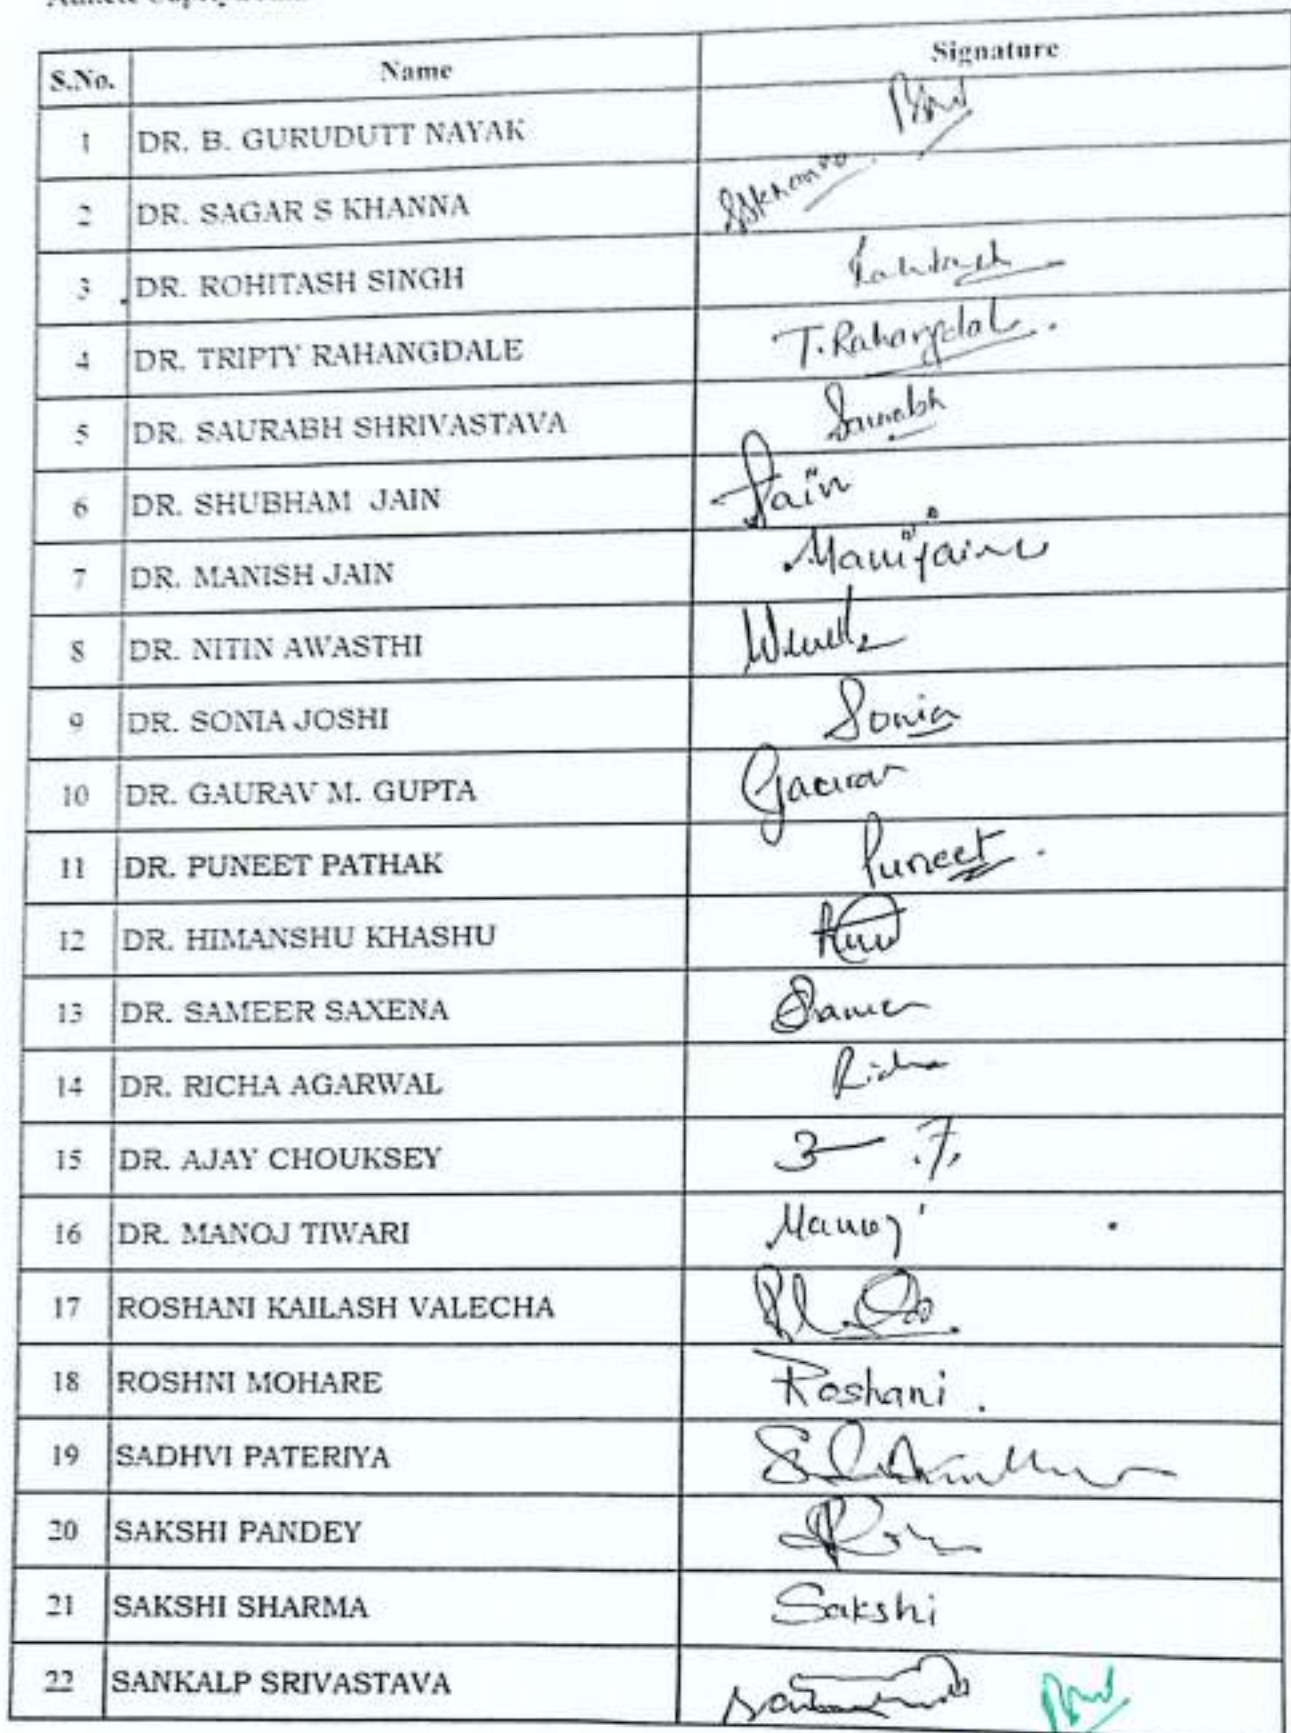 S.No. Name Signature
1 DR. B. GURUDUTT NAYAK
2 DR. SAGAR S KHANNA SSKhanna
3 DR. ROHITASH SINGH Rohitash
4 DR. TRIPTY RAHANGDALE T. Rahangdale.
5 DR. SAURABH SHRIVASTAVA Saurabh
6 DR. SHUBHAM JAIN Jain
7 DR. MANISH JAIN Manijain
8 DR. NITIN AWASTHI
9 DR. SONIA JOSHI Sonia
10 DR. GAURAV M. GUPTA Gaurav
11 DR. PUNEET PATHAK Puneet.
12 DR. HIMANSHU KHASHU
13 DR. SAMEER SAXENA Sameer
14 DR. RICHA AGARWAL Richa
15 DR. AJAY CHOUKSEY
16 DR. MANOJ TIWARI Manoj
17 ROSHANI KAILASH VALECHA
18 ROSHNI MOHARE Roshani.
19 SADHVI PATERIYA
20 SAKSHI PANDEY
21 SAKSHI SHARMA Sakshi
22 SANKALP SRIVASTAVA